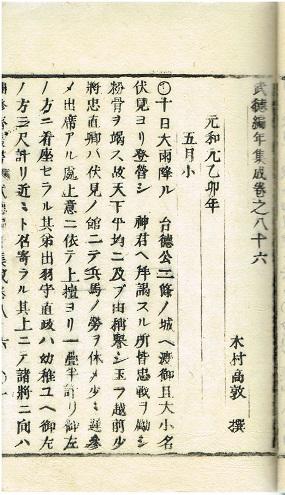 武徳編年集成巻之八十六
木村高敦 撰
元和元乙卯年
五月小
○十日大雨降ル 台徳公二條ノ城ヘ渡御且大小名
伏見ヨリ登營シ 神君ヘ拜謁スル所皆忠戰ヲ勵シ
粉骨ヲ竭ス故天下平均ニ及ブ由稱譽シ玉フ越前少
將忠直卿ハ伏見ノ館ニテ兵馬ノ勞ヲ休メ少シ遲參
メ出席アル處上意ニ依テ上壇ヨリ一疊半計リ御左
ノ方ニ着座セラル其弟出羽守直政ハ幼稚ユヘ御左
ノ方三尺許リ近ミト名寄ラル其上ニテ諸將ニ向ハ